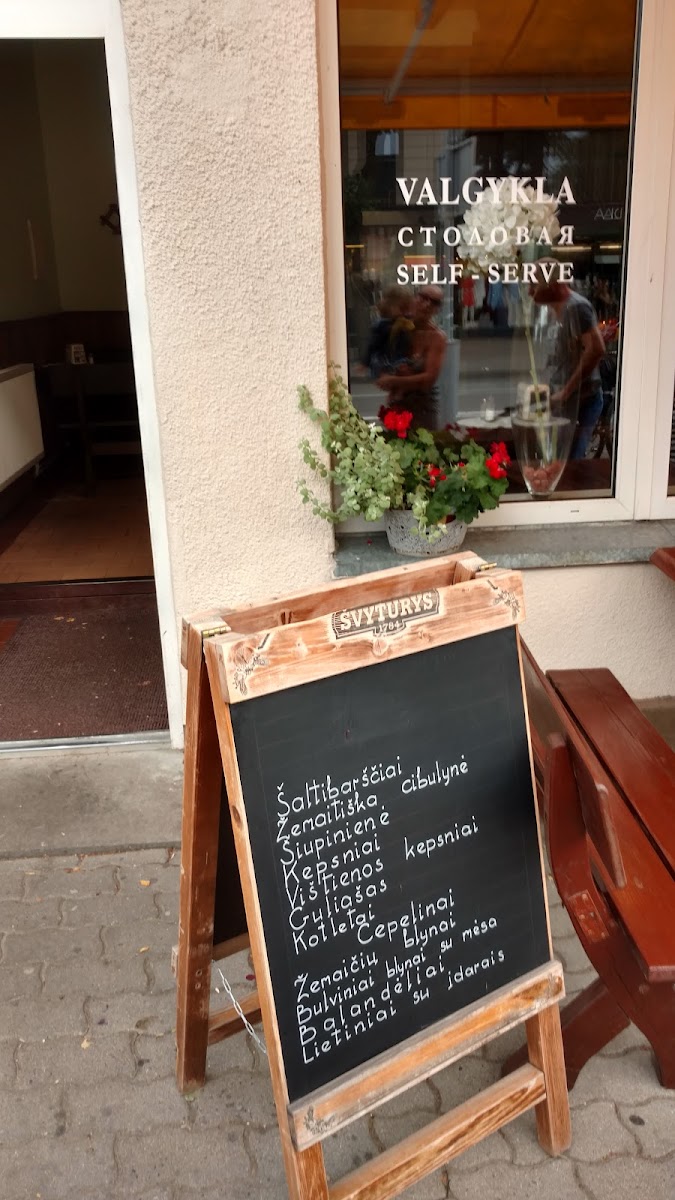 VALGYKLA
СТОЛОВАЯ
SELF-SERVE
ŠVYTURYS
1784
Šaltibarščiai
Žemaitiška cibulynė
Šiupinienė
Kepsniai
Vištienos kepsniai
Guliašas
Kotletai
Cepelinai
Žemaičių blynai
Bulviniai blynai su mėsa
Balandėliai
Lietiniai su įdarais